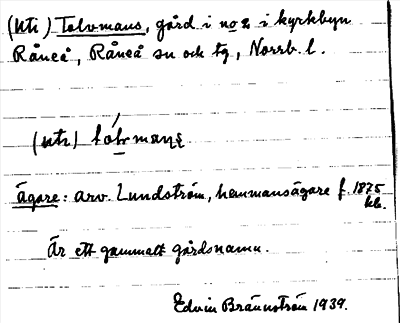 (uti) Tolvmans, gård i no 2 i kyrkbyn
Råneå, Råneå sn och tg, Norrb. l.
(uti)
Ägare: arv. Lundström, hemmansägare f. 1875
Är ett gammalt gårdsnamn.
Edvin Brännström 1939.